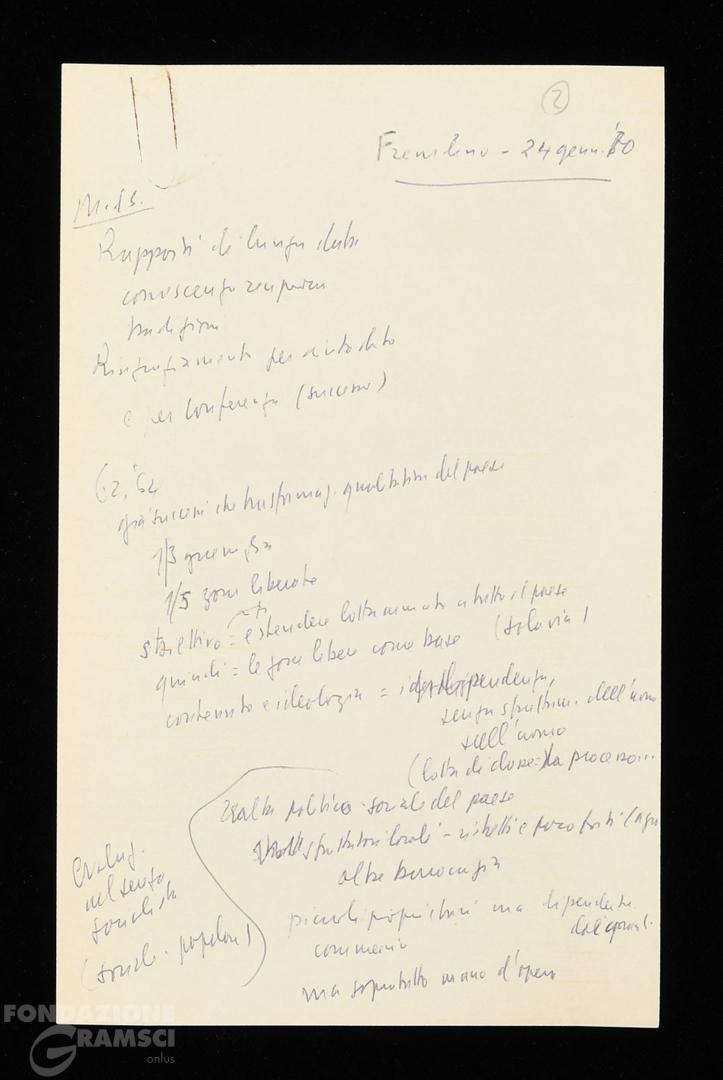 2
Frenlino - 24 genn. '70
M. d S.
Rapporti di lunga data
conoscenza reciproca
tradizioni
Ringraziamento per aiuto dato
e per Conferenza (successo)
62, '64
già successi che trasformaz. qualitativa del paese
1/3 guerriglia
1/5 zone liberate
obiettivo = estendere lotta armata a tutto il paese
quindi = le zone libere come base (sola via)
contenuto e ideologia = indipendenza,
senza sfruttam. dell'uomo
sull'uomo
(lotta di classe = la processo...
realtà politico-sociale del paese
sfruttatori locali - ristretti e poco forti (agr
alta borghesia
piccoli proprietari ma dipendate
dai
commercio
ma soprattutto mano d'opera
Evoluz.
nel senso
socialista
(social. popolare)
FONDAZIONE
GRAMSCI
onlus